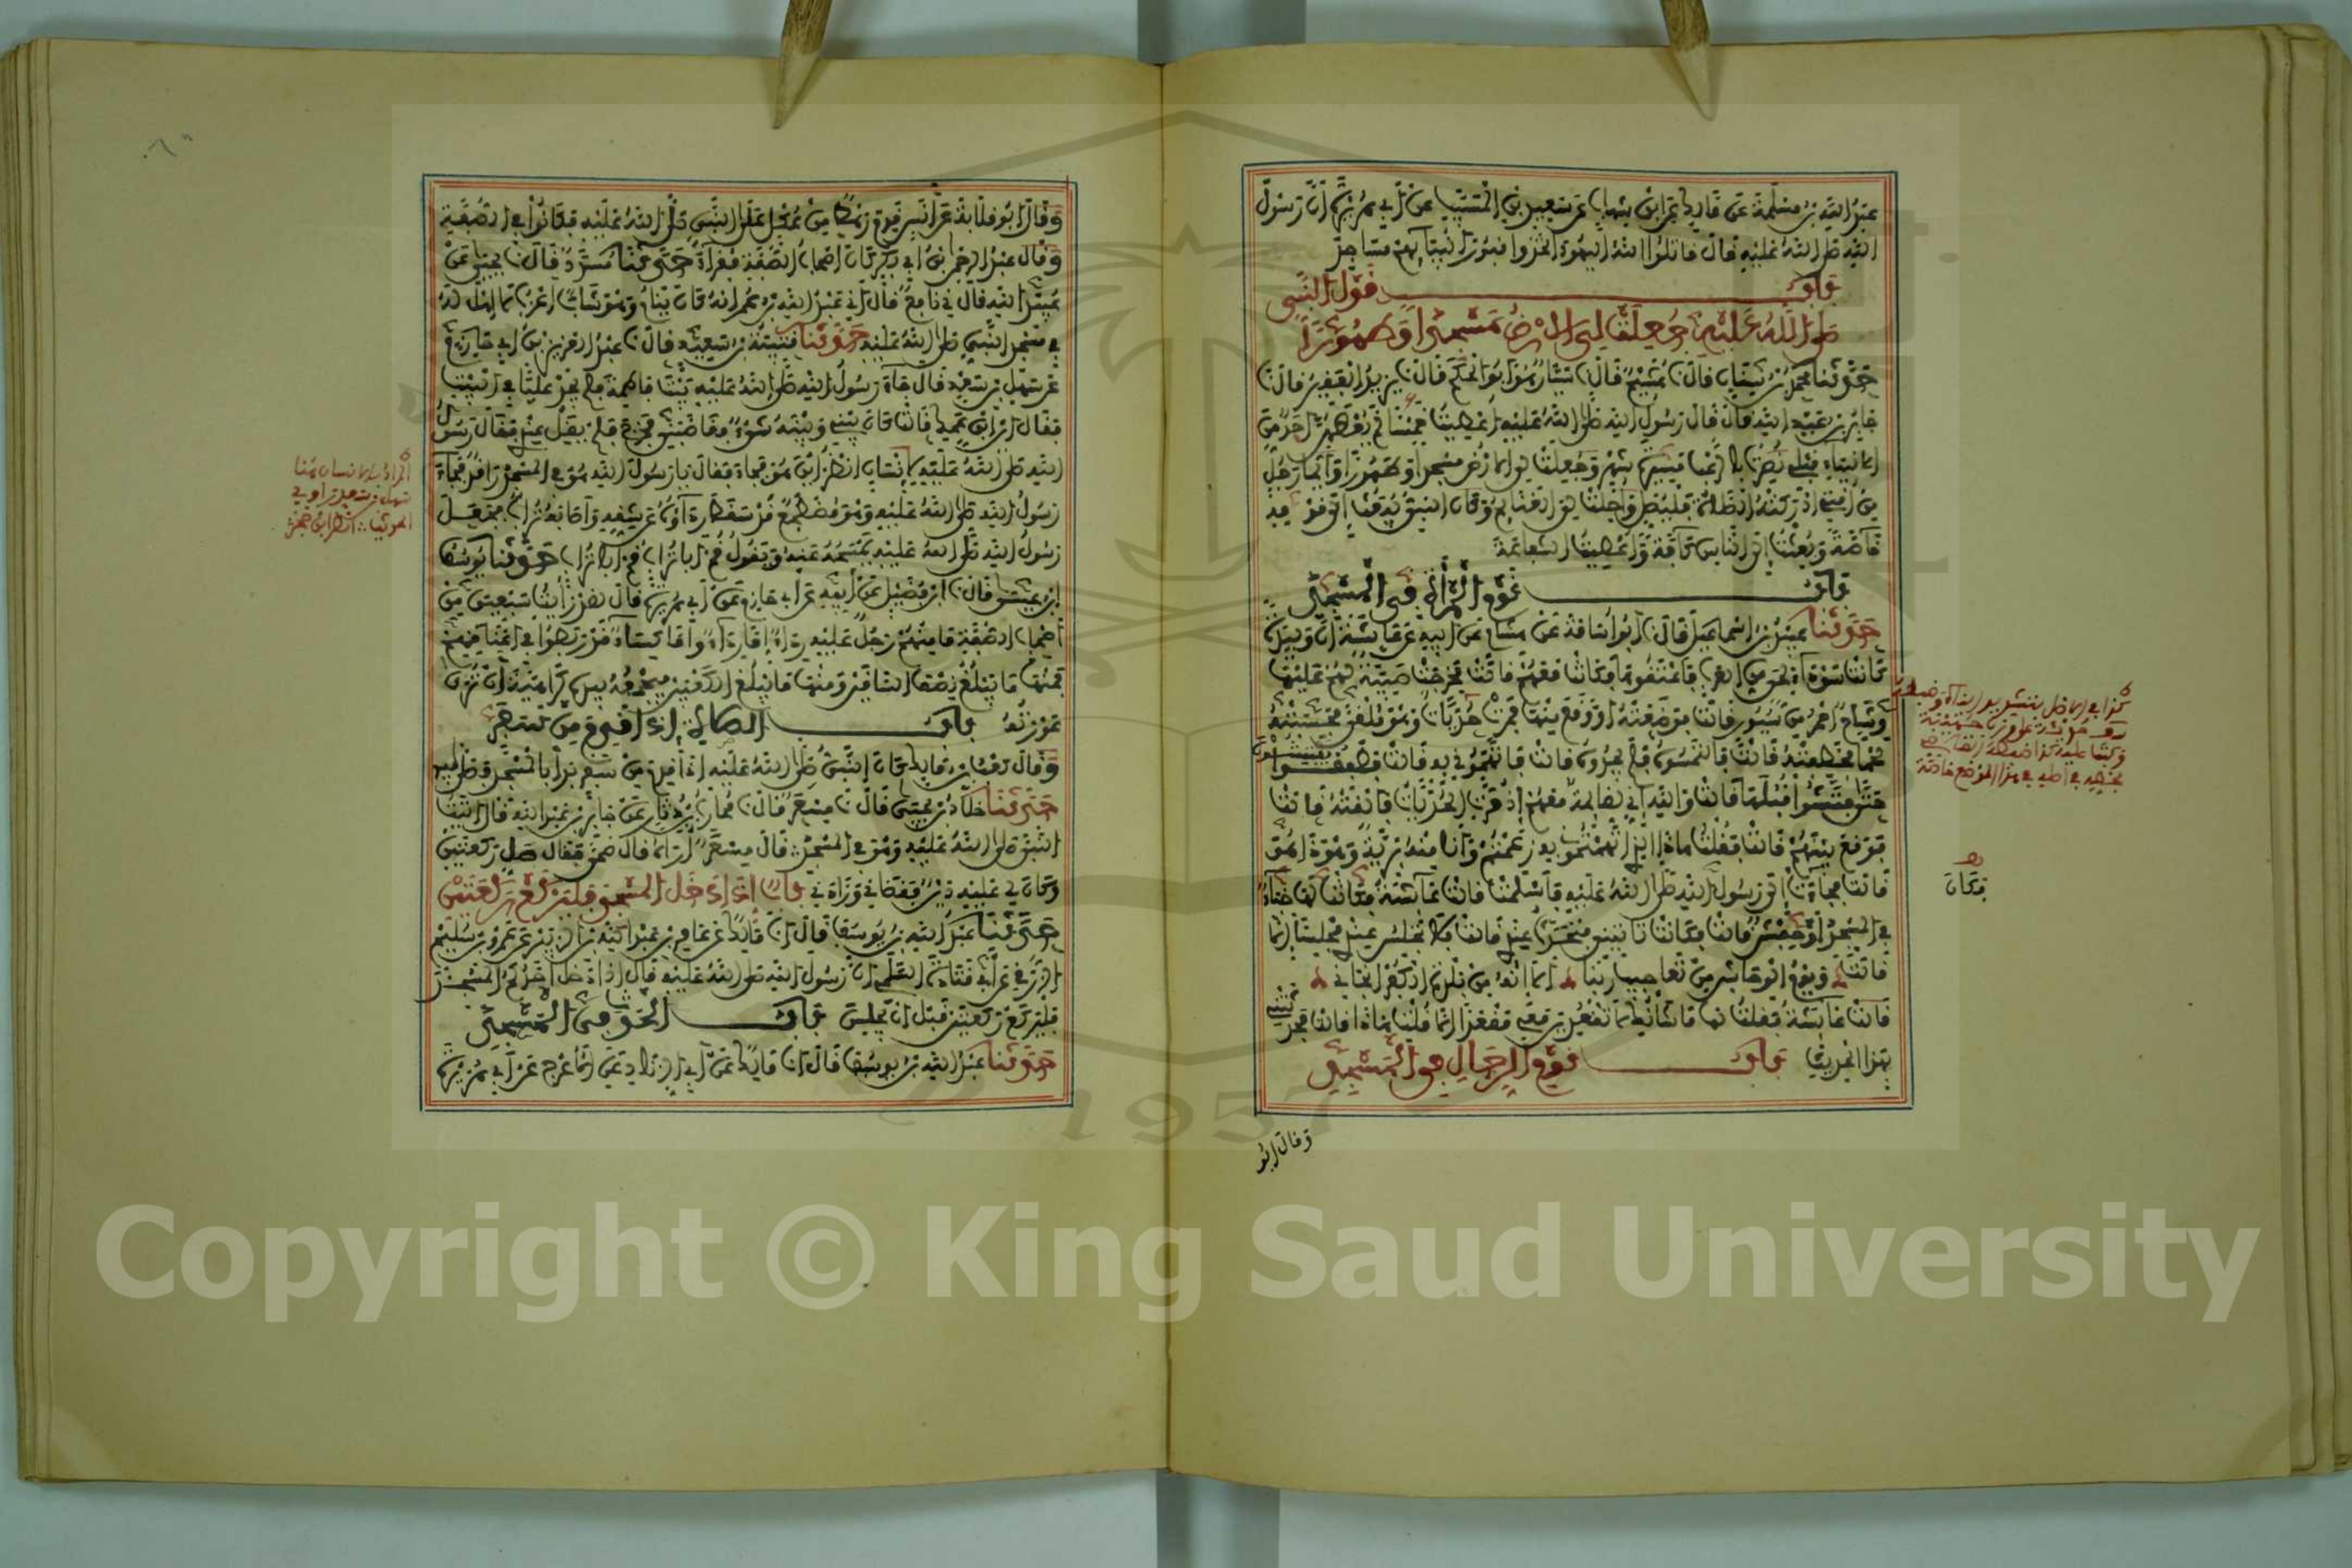 عبد الله بن مسلمة عن مالك عن ابن شهاب عن سعيد بن المسيب عن أبي هريرة أن رسول
الله صلى الله عليه قال قاتل الله اليهود اتخذوا قبور أنبيائهم مساجد
باب قول النبي
صلى الله عليه جعلت لي الأرض مسجدا وطهورا
حدثنا محمد بن سنان قال نا هشيم قال نا سيار هو أبو الحكم قال نا يزيد الفقير قال نا
جابر بن عبد الله قال قال رسول الله صلى الله عليه أعطيت خمسا لم يعطهن أحد من
الأنبياء قبلي نصرت بالرعب مسيرة شهر وجعلت لي الأرض مسجدا وطهورا وأيما رجل
من أمتي أدركته الصلاة فليصل وأحلت لي الغنائم وكان النبي يبعث إلى قومه
خاصة وبعثت إلى الناس كافة وأعطيت الشفاعة
باب نوم المرأة في المسجد
حدثنا عبيد بن إسماعيل قال نا أبو أسامة عن هشام عن أبيه عن عائشة أن وليدة
كانت سوداء لحي من العرب فأعتقوها فكانت معهم قالت فخرجت صبية لهم عليها
وشاح أحمر من سيور قالت فوضعته أو وقع منها فمرت حدياة وهو ملقى فحسبته
لحما فخطفته قالت فالتمسوه فلم يجدوه قالت فاتهموني به قالت فطفقوا يفتشون
حتى فتشوا قبلها قالت والله إني لقائمة معهم إذ مرت الحدياة فألقته قالت
فوقع بينهم قالت فقلت هذا الذي اتهمتموني به زعمتم وأنا منه بريئة وهو ذا هو
قالت فجاءت إلى رسول الله صلى الله عليه فأسلمت قالت عائشة فكانت لها خباء
في المسجد أو حفش قالت فكانت تأتيني فتحدث عندي قالت فلا تجلس عندي مجلسا إلا
قالت ويوم الوشاح من تعاجيب ربنا ألا إنه من بلدة الكفر أنجاني
قالت عائشة فقلت لها ما شأنك لا تقعدين معي مقعدا إلا قلت هذا قالت فحدثتني
بهذا الحديث باب نوم الرجال في المسجد
كذا في الأصل
فكان
وقال أبو
وقال أبو قلابة عن أنس قدم رهط من عكل على النبي صلى الله عليه فكانوا في الصفة
وقال عبد الرحمن بن أبي بكر كان أصحاب الصفة فقراء حدثنا مسدد قال نا يحيى عن
عبيد الله قال ني نافع قال أني عبد الله بن عمر أنه كان ينام وهو شاب أعزب لا أهل له
في مسجد النبي صلى الله عليه حدثنا قتيبة بن سعيد قال نا عبد العزيز بن أبي حازم عن
عن سهل بن سعد قال جاء رسول الله صلى الله عليه بيت فاطمة فلم يجد عليا في البيت
فقال أين ابن عمك قالت كان بيني وبينه شيء فغاضبني فخرج فلم يقل عندي فقال رسول
الله صلى الله عليه لإنسان انظر أين هو فجاء فقال يا رسول الله هو في المسجد راقد فجاء
رسول الله صلى الله عليه وهو مضطجع قد سقط رداؤه عن شقه وأصابه تراب فجعل
رسول الله صلى الله عليه يمسحه عنه ويقول قم أبا تراب قم أبا تراب حدثنا يوسف
ابن عيسى قال نا ابن فضيل عن أبيه عن أبي حازم عن أبي هريرة قال لقد رأيت سبعين من
أصحاب الصفة ما منهم رجل عليه رداء إما إزار وإما كساء قد ربطوا في أعناقهم
فمنها ما يبلغ نصف الساقين ومنها ما يبلغ الكعبين فيجمعه بيده كراهية أن ترى
عورته باب الصلاة إذا قدم من سفر
وقال كعب بن مالك كان النبي صلى الله عليه إذا قدم من سفر بدأ بالمسجد فصلى فيه
حدثنا خلاد بن يحيى قال نا مسعر قال نا محارب بن دثار عن جابر بن عبد الله قال أتيت
النبي صلى الله عليه وهو في المسجد قال مسعر أراه قال ضحى فقال صل ركعتين
وكان لي عليه دين فقضاني وزادني باب إذا دخل المسجد فليركع ركعتين
حدثنا عبد الله بن يوسف قال أنا مالك عن عامر بن عبد الله بن الزبير عن عمرو بن سليم
الزرقي عن أبي قتادة السلمي أن رسول الله صلى الله عليه قال إذا دخل أحدكم المسجد
فليركع ركعتين قبل أن يجلس باب الحدث في المسجد
حدثنا عبد الله بن يوسف قال أنا مالك عن أبي الزناد عن الأعرج عن أبي هريرة
المراد بالإنسان هنا
سهل بن سعد راوي
الحديث انظر ابن حجر
Copyright © King Saud University
1957